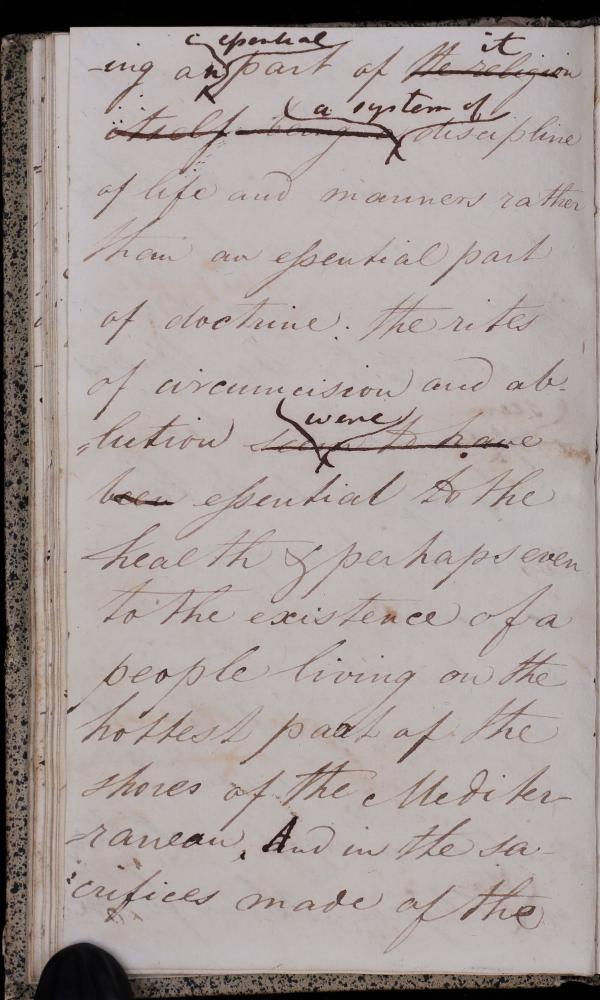 essential it
-ing an part of the religion
a system of
itself being a discipline
of life and manners rather
than an essential part
of doctrine. The rites
of circumcision and ab-
were
=lution seem to have
been essential to the
health & perhaps even
to the existence of a
people living on the
hottest part of the
shores of the Mediter-
=ranean. And in the sa-
=crifices made of the